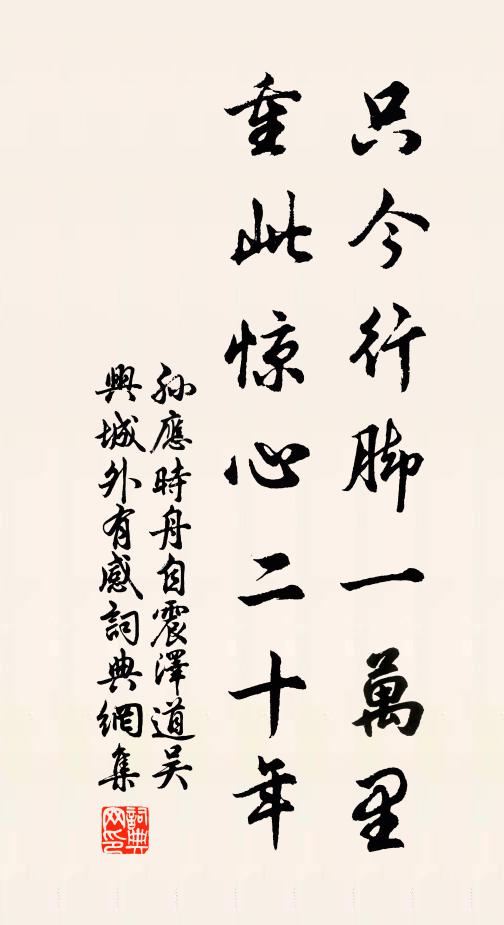 只今行脚一萬里
重此惊心二十年
孫應時舟自震澤道吴
興城外有感詞典網集
詞典網印